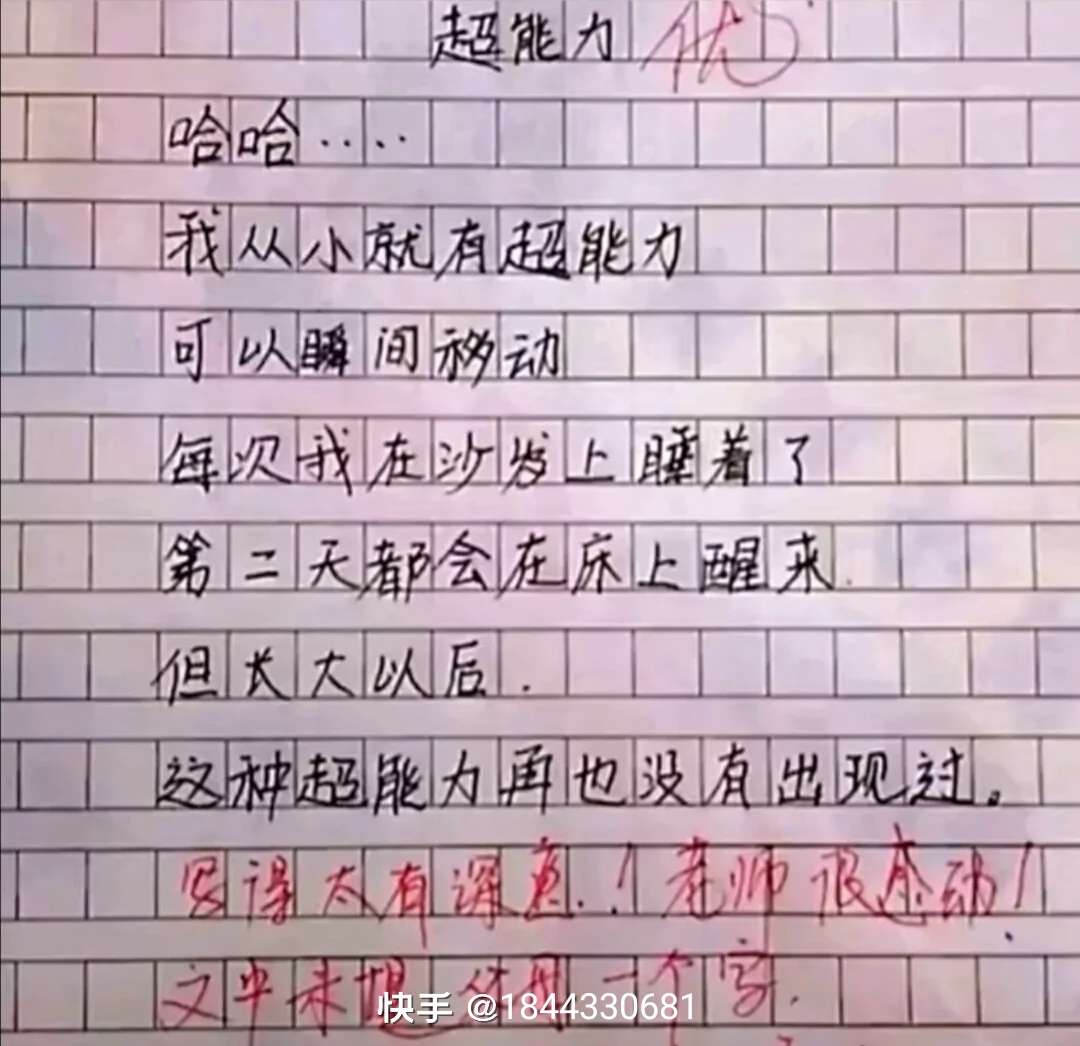 超能力 优
哈哈····
我从小就有超能力
可以瞬间移动
每次我在沙发上睡着了
第二天都会在床上醒来.
但长大以后.
这种超能力再也没有出现过。
写得太有深意!老师很感动!
文中未提 一个字.
快手 @1844330681